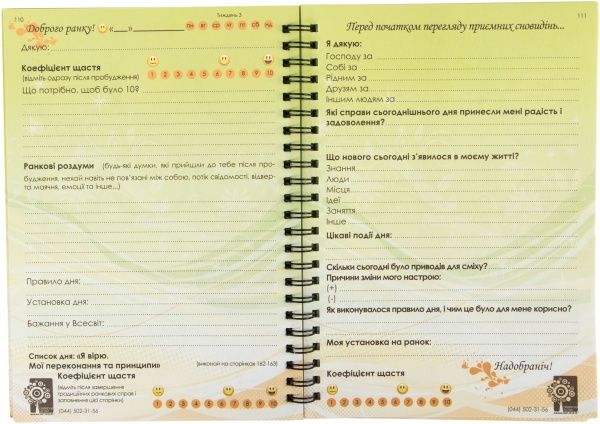 110
Тиждень 3
Доброго ранку! «___»
пн вт ср чт пт сб нд
Дякую:
Коефіцієнт щастя
(відміть одразу після пробудження)
1 2 3 4 5 6 7 8 9 10
Що потрібно, щоб було 10?
Ранкові роздуми (будь-які думки, які прийшли до тебе після про-
будження, нехай навіть не пов'язані між собою, потік свідомості, відвер-
та маячня, емоції та інше...)
Правило дня:
Установка дня:
Бажання у Всесвіт:
Список дня: «Я вірю.
Мої переконання та принципи»
(виконай на сторінках 162-163)
Коефіцієнт щастя
(відміть після завершення
традиційних ранкових справ і
заповнення цієї сторінки)
1 2 3 4 5 6 7 8 9 10
(044) 502-31-56
111
Перед початком перегляду приємних сновидінь...
Я дякую:
Господу за
Собі за
Рідним за
Друзям за
Іншим людям за
Які справи сьогоднішнього дня принесли мені радість і
задоволення?
Що нового сьогодні з'явилося в моєму житті?
Знання
Люди
Місця
Ідеї
Заняття
Інше
Цікаві події дня:
Скільки сьогодні було приводів для сміху?
Причини зміни мого настрою:
(+)
(-)
Як виконувалося правило дня, і чим це було для мене корисно?
Моя установка на ранок:
Коефіцієнт щастя
Надобраніч!
1 2 3 4 5 6 7 8 9 10
(044) 502-31-56